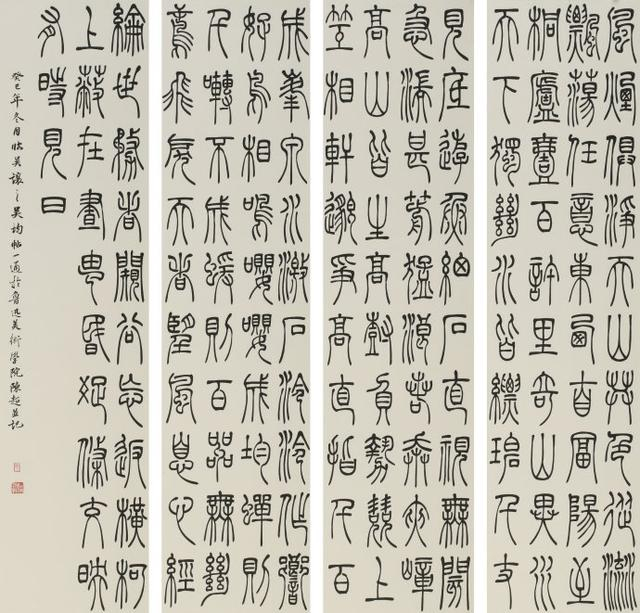 風煙俱淨天山共色從流
飄蕩任意東西自富陽至
桐廬壹百許里奇山異水
天下獨絕水皆縹碧千丈
見底遊魚細石直視無閡
急湍甚箭猛浪若奔夾嶂
高山皆生高樹負勢競上
互相軒邈爭高直指千百
成峯泉水激石泠泠作響
好鳥相鳴嚶嚶成均蟬則
千囀不成蝯則百叫無絕
鳶飛戾天者望風息心經
綸世務者闚谷忘返橫柯
上蔽在晝昏疏條交映
有時見日
癸巳年冬月臨吳讓之吳均帖一通於魯迅美術學院陳超並記